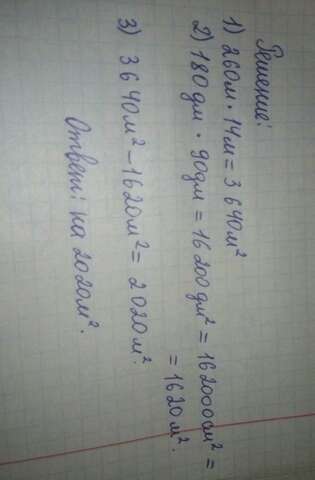 Решение:
1) 260м · 14м = 3640м²
2) 180дм · 90дм = 16200дм² = 162000см² =
= 1620м².
3) 3640м² - 1620м² = 2020м².
Ответ: на 2020м².